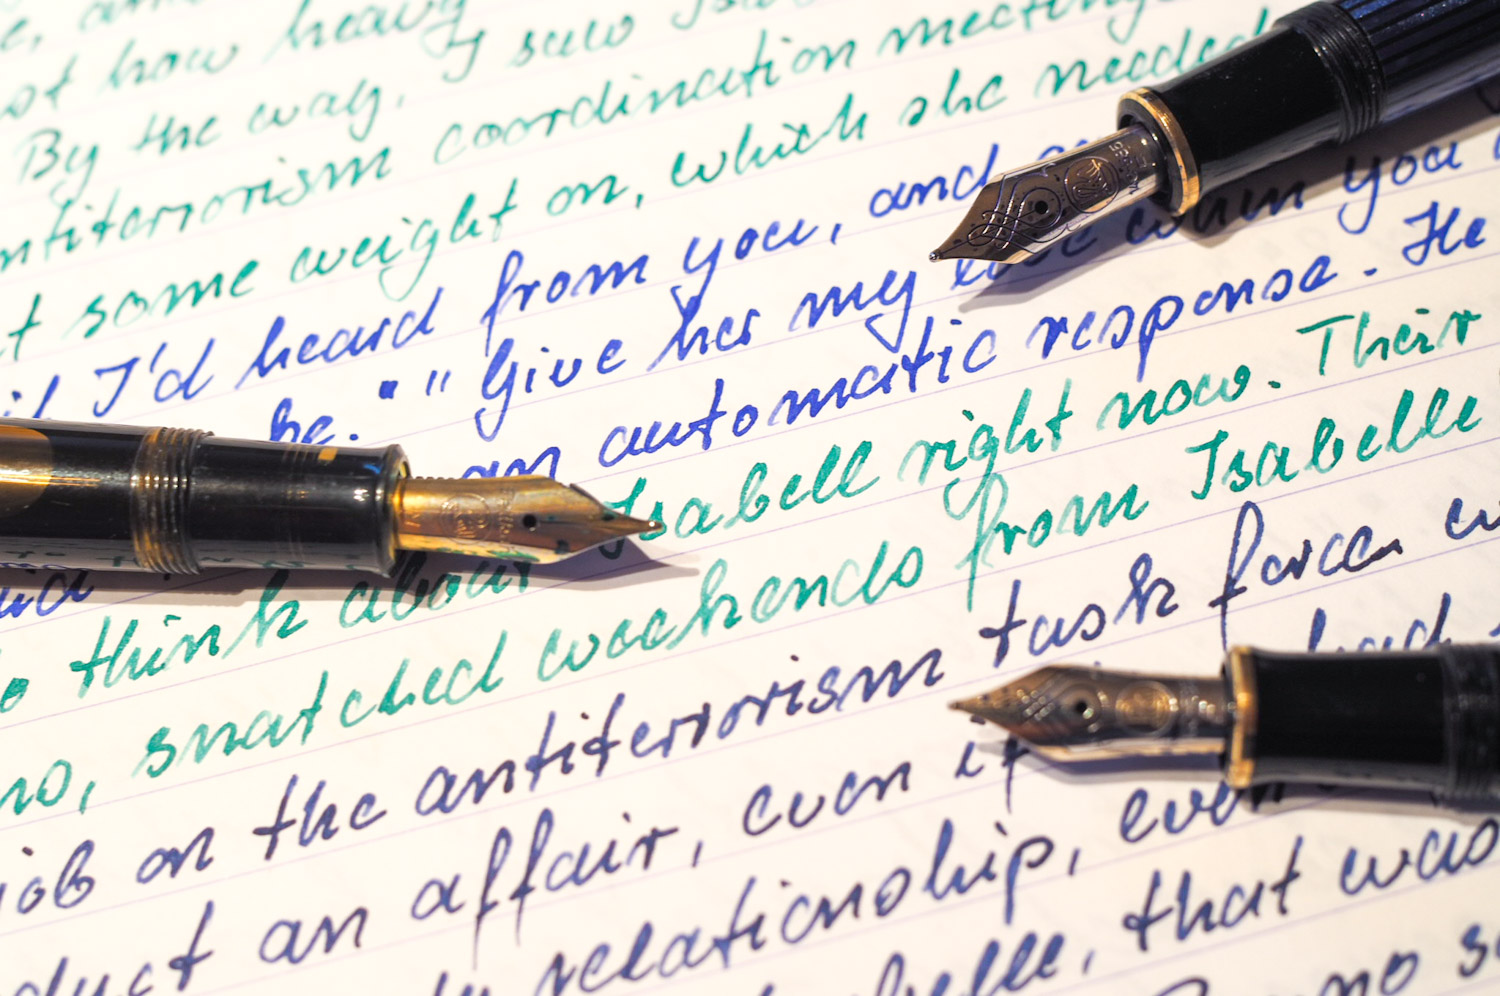 how heavy
By the way, I saw
antiterrorism coordination meeting
some weight on, which she needed
I'd heard from you, and
be." "Give her my love when you
an automatic response. He
Isabell right now. Their
think about
snatched weekends from Isabelle
job on the antiterrorism task force
an affair, even if
relationship, even
that was
no